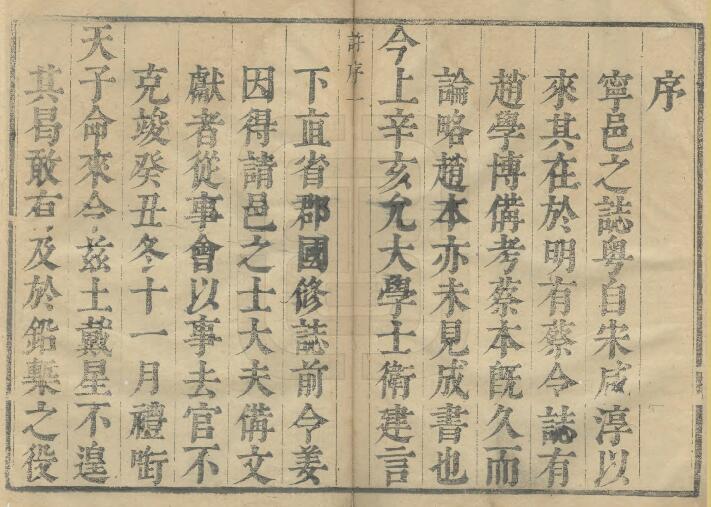 序
寧邑之誌粤自宋咸淳以
來其在於明有蔡令誌有
趙學博備考蔡本旣久而
論略趙本亦未見成書也
今上辛亥允大學士衛建言
許序一
下直省郡國修誌前令姜
因得請邑之士大夫備文
獻者從事會以事去官不
克竣癸丑冬十一月禮銜
天子命來令茲土戴星不遑
其曷敢有及於鉛槧之役